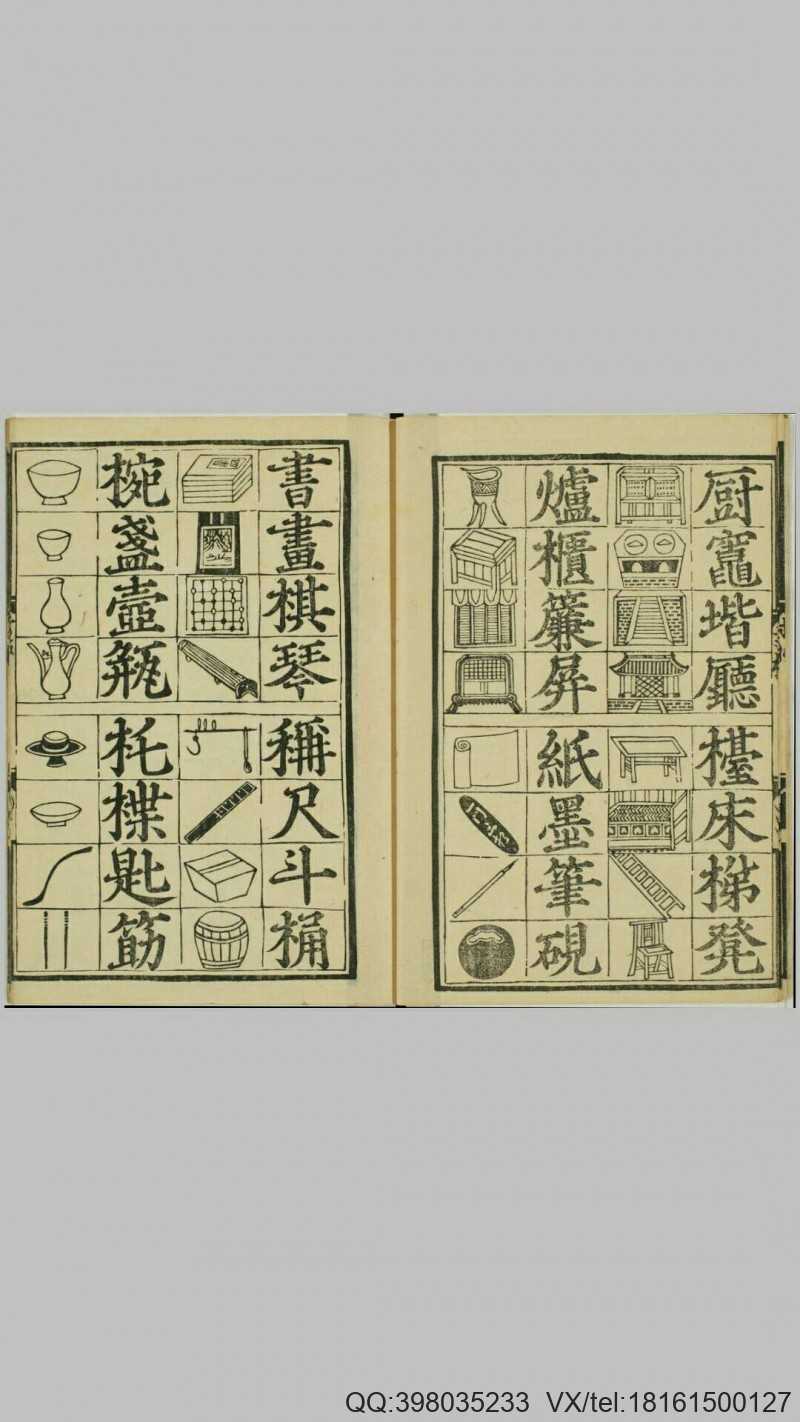 厨竈堦廳檯床梯凳
爐櫃簾屏紙墨筆硯
書畫棋琴稱尺斗桶
椀盞壼瓶托楪匙筯
QQ:398035233 VX/tel:18161500127